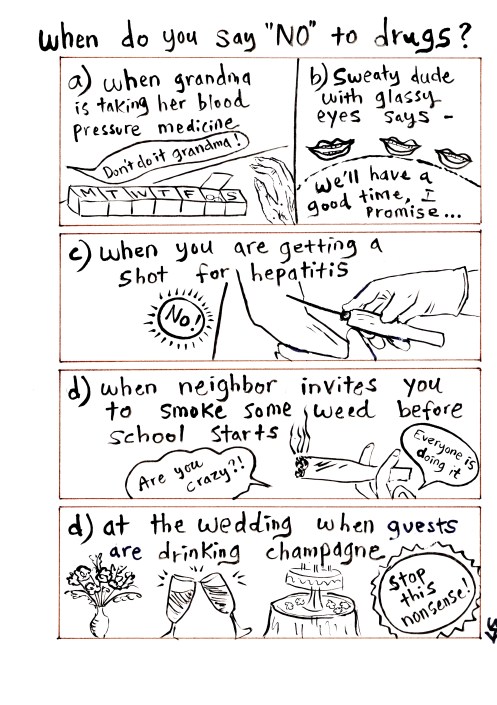 when do you say "NO" to drugs?
a) when grandma
is taking her blood
pressure medicine
Don't do it grandma!
M T W T F S S
b) Sweaty dude
with glassy
eyes says -
We'll have a
good time, I
promise...
c) when you are getting a
shot for hepatitis
No!
d) when neighbor invites you
to smoke some weed before
school starts
Are you
crazy?!
Everyone is
doing it
d) at the wedding when guests
are drinking champagne
Stop
this
nonsense!